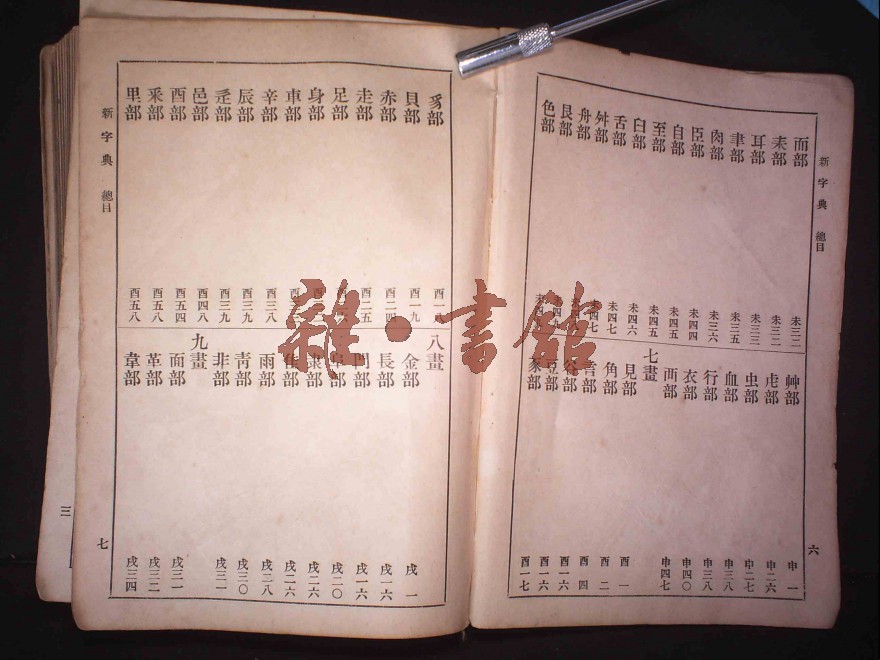 新字典 總目 六
而部 未三二
耒部 未三二
耳部 未三三
聿部 未三五
肉部 未三六
臣部 未四四
自部 未四四
至部 未四五
臼部 未四六
舌部 未四七
舛部 未四七
舟部
艮部
色部
艸部 申一
虍部 申二六
虫部 申二七
血部 申三八
行部 申三八
衣部 申四〇
襾部 申四七
七畫
見部 酉一
角部 酉二
言部 酉四
谷部 酉一六
豆部 酉一六
豕部 酉一七
豸部 酉一八
貝部 酉一九
赤部 酉二四
走部 酉二五
足部
身部
車部
辛部 酉三八
辰部 酉三九
辵部 酉三九
邑部 酉四八
酉部 酉五四
釆部 酉五八
里部 酉五八
八畫
金部 戌一
長部 戌一六
門部 戌一六
阜部 戌二〇
隶部 戌二六
隹部 戌二六
雨部 戌二八
靑部 戌三〇
非部 戌三一
九畫
面部 戌三一
革部 戌三二
韋部 戌三四
新字典 總目 七
三
雜·書館